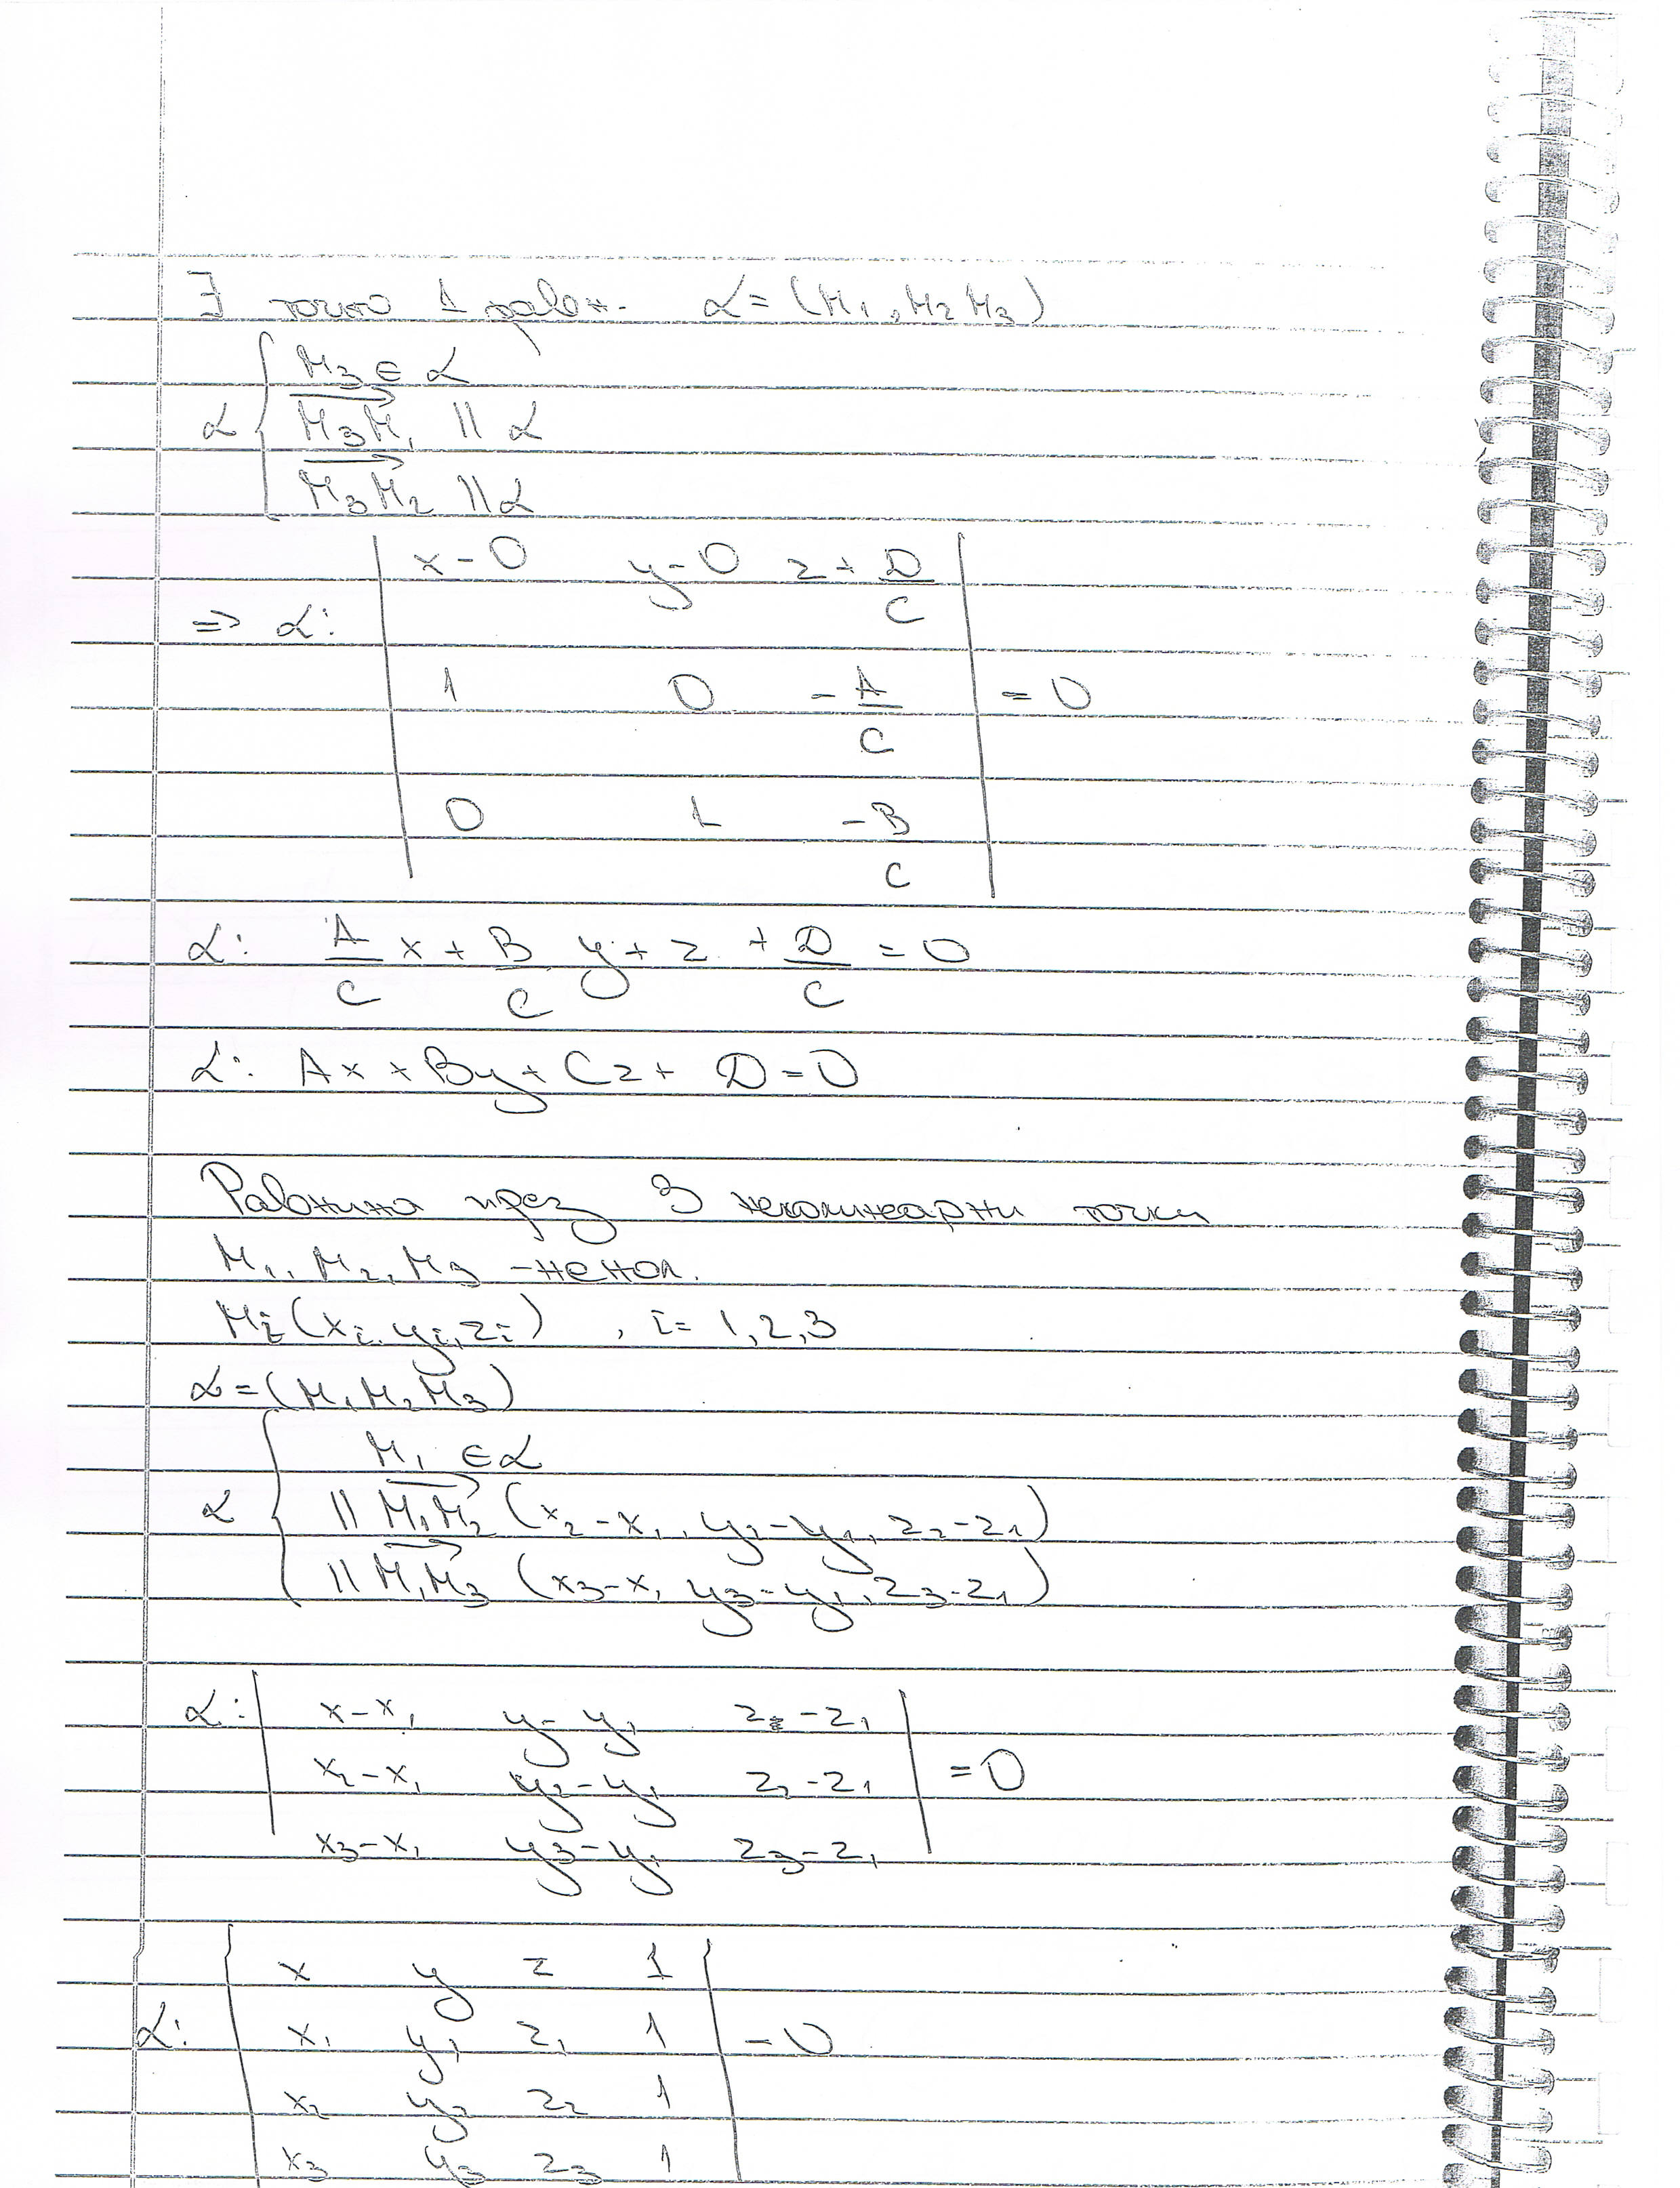 ∃ точно 1 равн. α = (M₁, M₂ M₃)
α { M₃ ∈ α
M₃M₁ || α
M₃M₂ || α
x - 0 y - 0 z + D/C
=> α:
1 0 - A/C = 0
0 1 - B/C
α: A/C x + B/C y + z + D/C = 0
α: Ax + By + Cz + D = 0
Равнина през 3 неколинеарни точки
M₁, M₂, M₃ - некол.
Mᵢ (xᵢ, yᵢ, zᵢ) , i = 1,2,3
α = (M₁M₂M₃)
M₁ ∈ α
α { || M₁M₂ (x₂-x₁, y₂-y₁, z₂-z₁)
|| M₁M₃ (x₃-x₁ y₃-y₁, z₃-z₁)
α: | x-x₁ y-y₁ z-z₁ |
x₂-x₁ y₂-y₁ z₂-z₁ = 0
x₃-x₁ y₃-y₁ z₃-z₁
x y z 1
α: x₁ y₁ z₁ 1 = 0
x₂ y₂ z₂ 1
x₃ y₃ z₃ 1